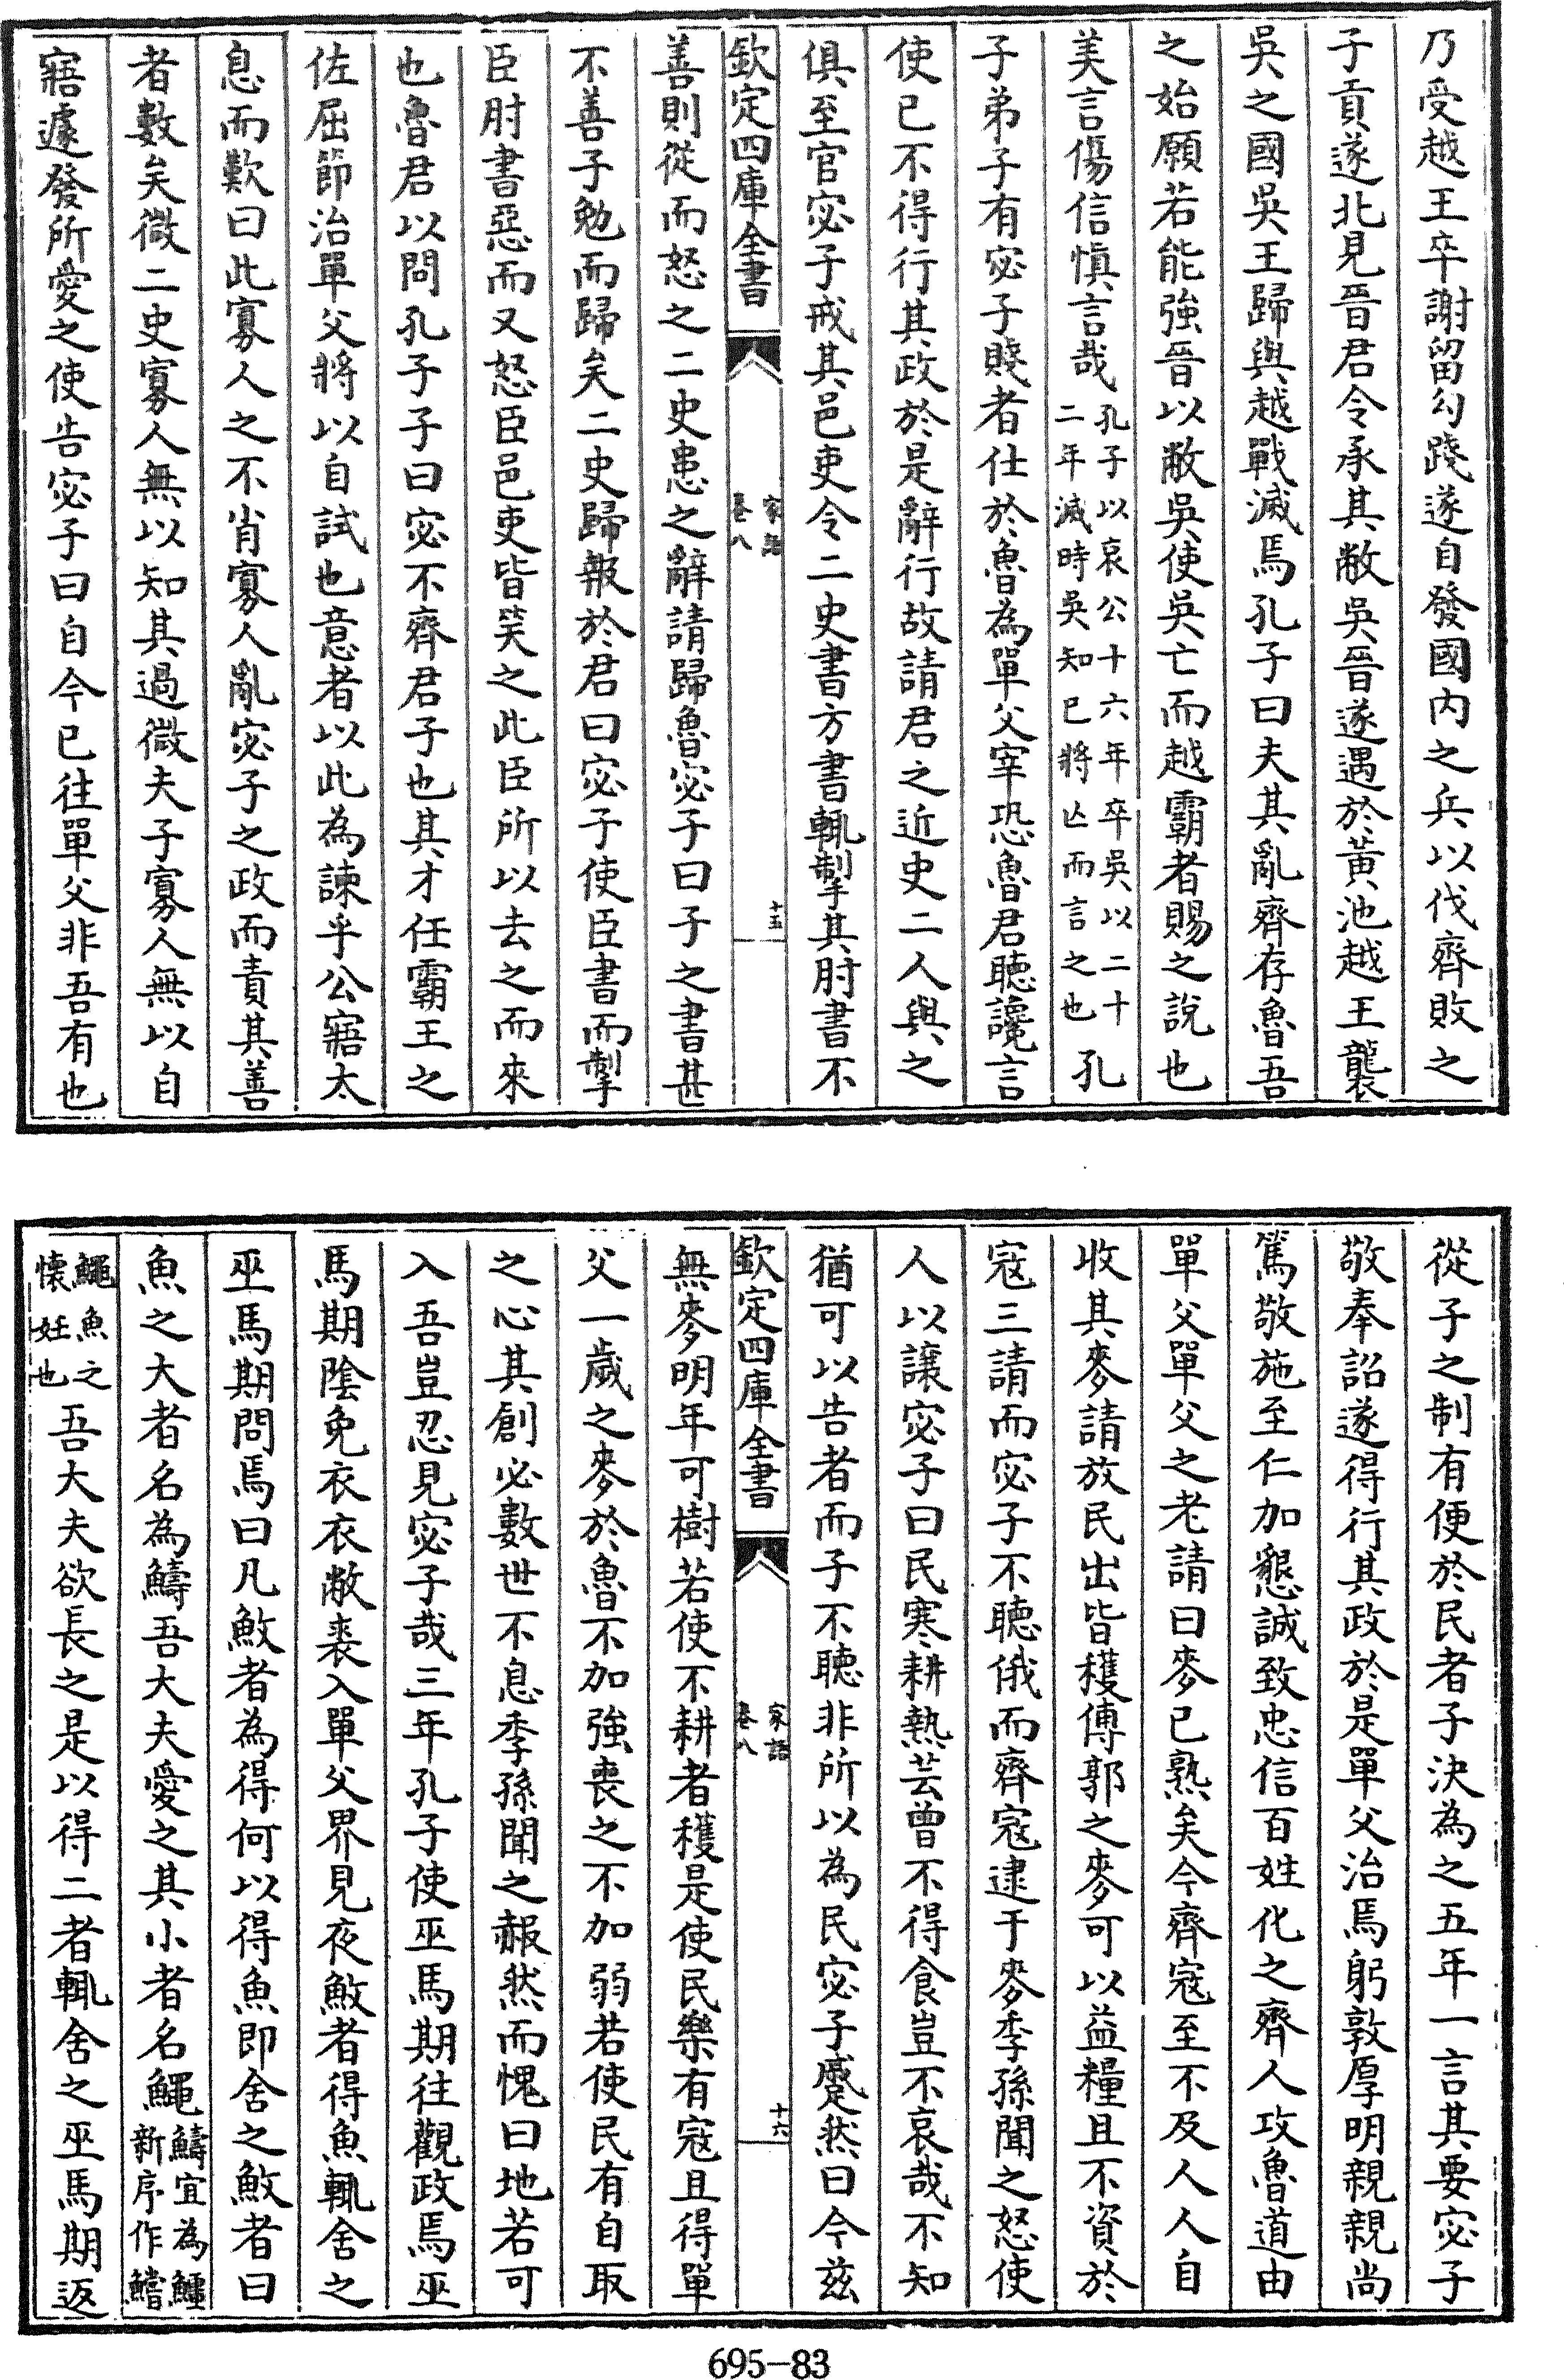 乃受越王卒謝留勾踐遂自發國內之兵以伐齊敗之
子貢遂北見晉君令承其敝吳晉遂遇於黃池越王襲
吳之國吳王歸與越戰滅焉孔子曰夫其亂齊存魯吾
之始願若能強晉以敝吳使吳亡而越霸者賜之說也
美言傷信慎言哉孔子以哀公十六年卒吳以二十二年滅時吳知已將亾而言之也孔
子弟子有宓子賤者仕於魯為單父宰恐魯君聽讒言
使已不得行其政於是辭行故請君之近史二人與之
俱至官宓子戒其邑吏令二史書方書輒掣其肘書不
欽定四庫全書 家語卷八 十五
善則從而怒之二史患之辭請歸魯宓子曰子之書甚
不善子勉而歸矣二史歸報於君曰宓子使臣書而掣
臣肘書惡而又怒臣邑吏皆笑之此臣所以去之而來
也魯君以問孔子子曰宓不齊君子也其才任霸王之
佐屈節治單父將以自試也意者以此為諫乎公寤太
息而歎曰此寡人之不肖寡人亂宓子之政而責其善
者數矣微二史寡人無以知其過微夫子寡人無以自
寤遽發所愛之使告宓子曰自今已往單父非吾有也
從子之制有便於民者子決為之五年一言其要宓子
敬奉詔遂得行其政於是單父治焉躬敦厚明親親尚
篤敬施至仁加懇誠致忠信百姓化之齊人攻魯道由
單父單父之老請曰麥已熟矣今齊寇至不及人人自
收其麥請放民出皆穫傅郭之麥可以益糧且不資於
寇三請而宓子不聽俄而齊寇逮于麥季孫聞之怒使
人以讓宓子曰民寒耕熱芸曾不得食豈不哀哉不知
猶可以告者而子不聽非所以為民宓子蹙然曰今兹
欽定四庫全書 家語卷八 十六
無麥明年可樹若使不耕者穫是使民樂有寇且得單
父一歲之麥於魯不加強喪之不加弱若使民有自取
之心其創必數世不息季孫聞之赧然而愧曰地若可
入吾豈忍見宓子哉三年孔子使巫馬期往觀政焉巫
馬期陰免衣衣敝裘入單父界見夜䱷者得魚輒舍之
巫馬期問焉曰凡䱷者為得何以得魚即舍之䱷者曰
魚之大者名為鱬吾大夫愛之其小者名鱦鱬宜為鱣新序作鱨
鱦魚之懷妊也吾大夫欲長之是以得二者輒舍之巫馬期返
695-83